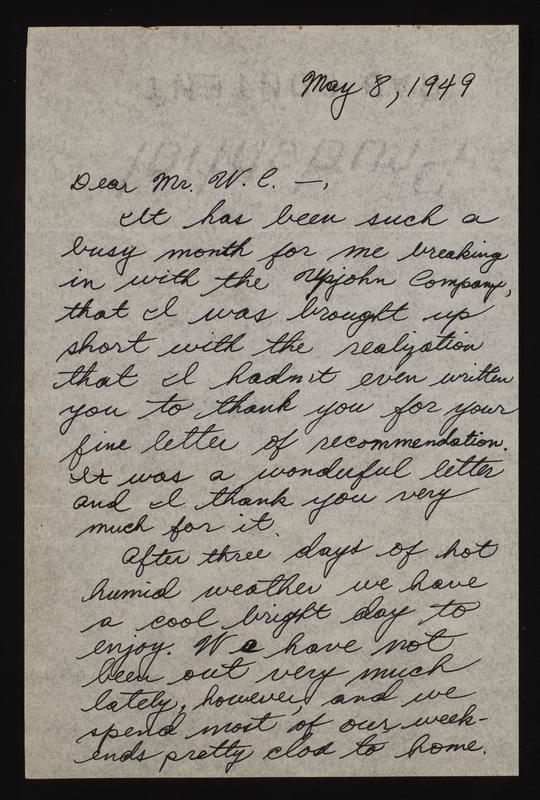 May 8, 1949
Dear Mr. W. C. —,
It has been such a
busy month for me breaking
in with the Upjohn Company,
that I was brought up
short with the realization
that I hadn't even written
you to thank you for your
fine letter of recommendation.
It was a wonderful letter
and I thank you very
much for it.
After three days of hot
humid weather we have
a cool bright day to
enjoy. We have not
been out very much
lately, however, and we
spend most of our week-
ends pretty clod to home.